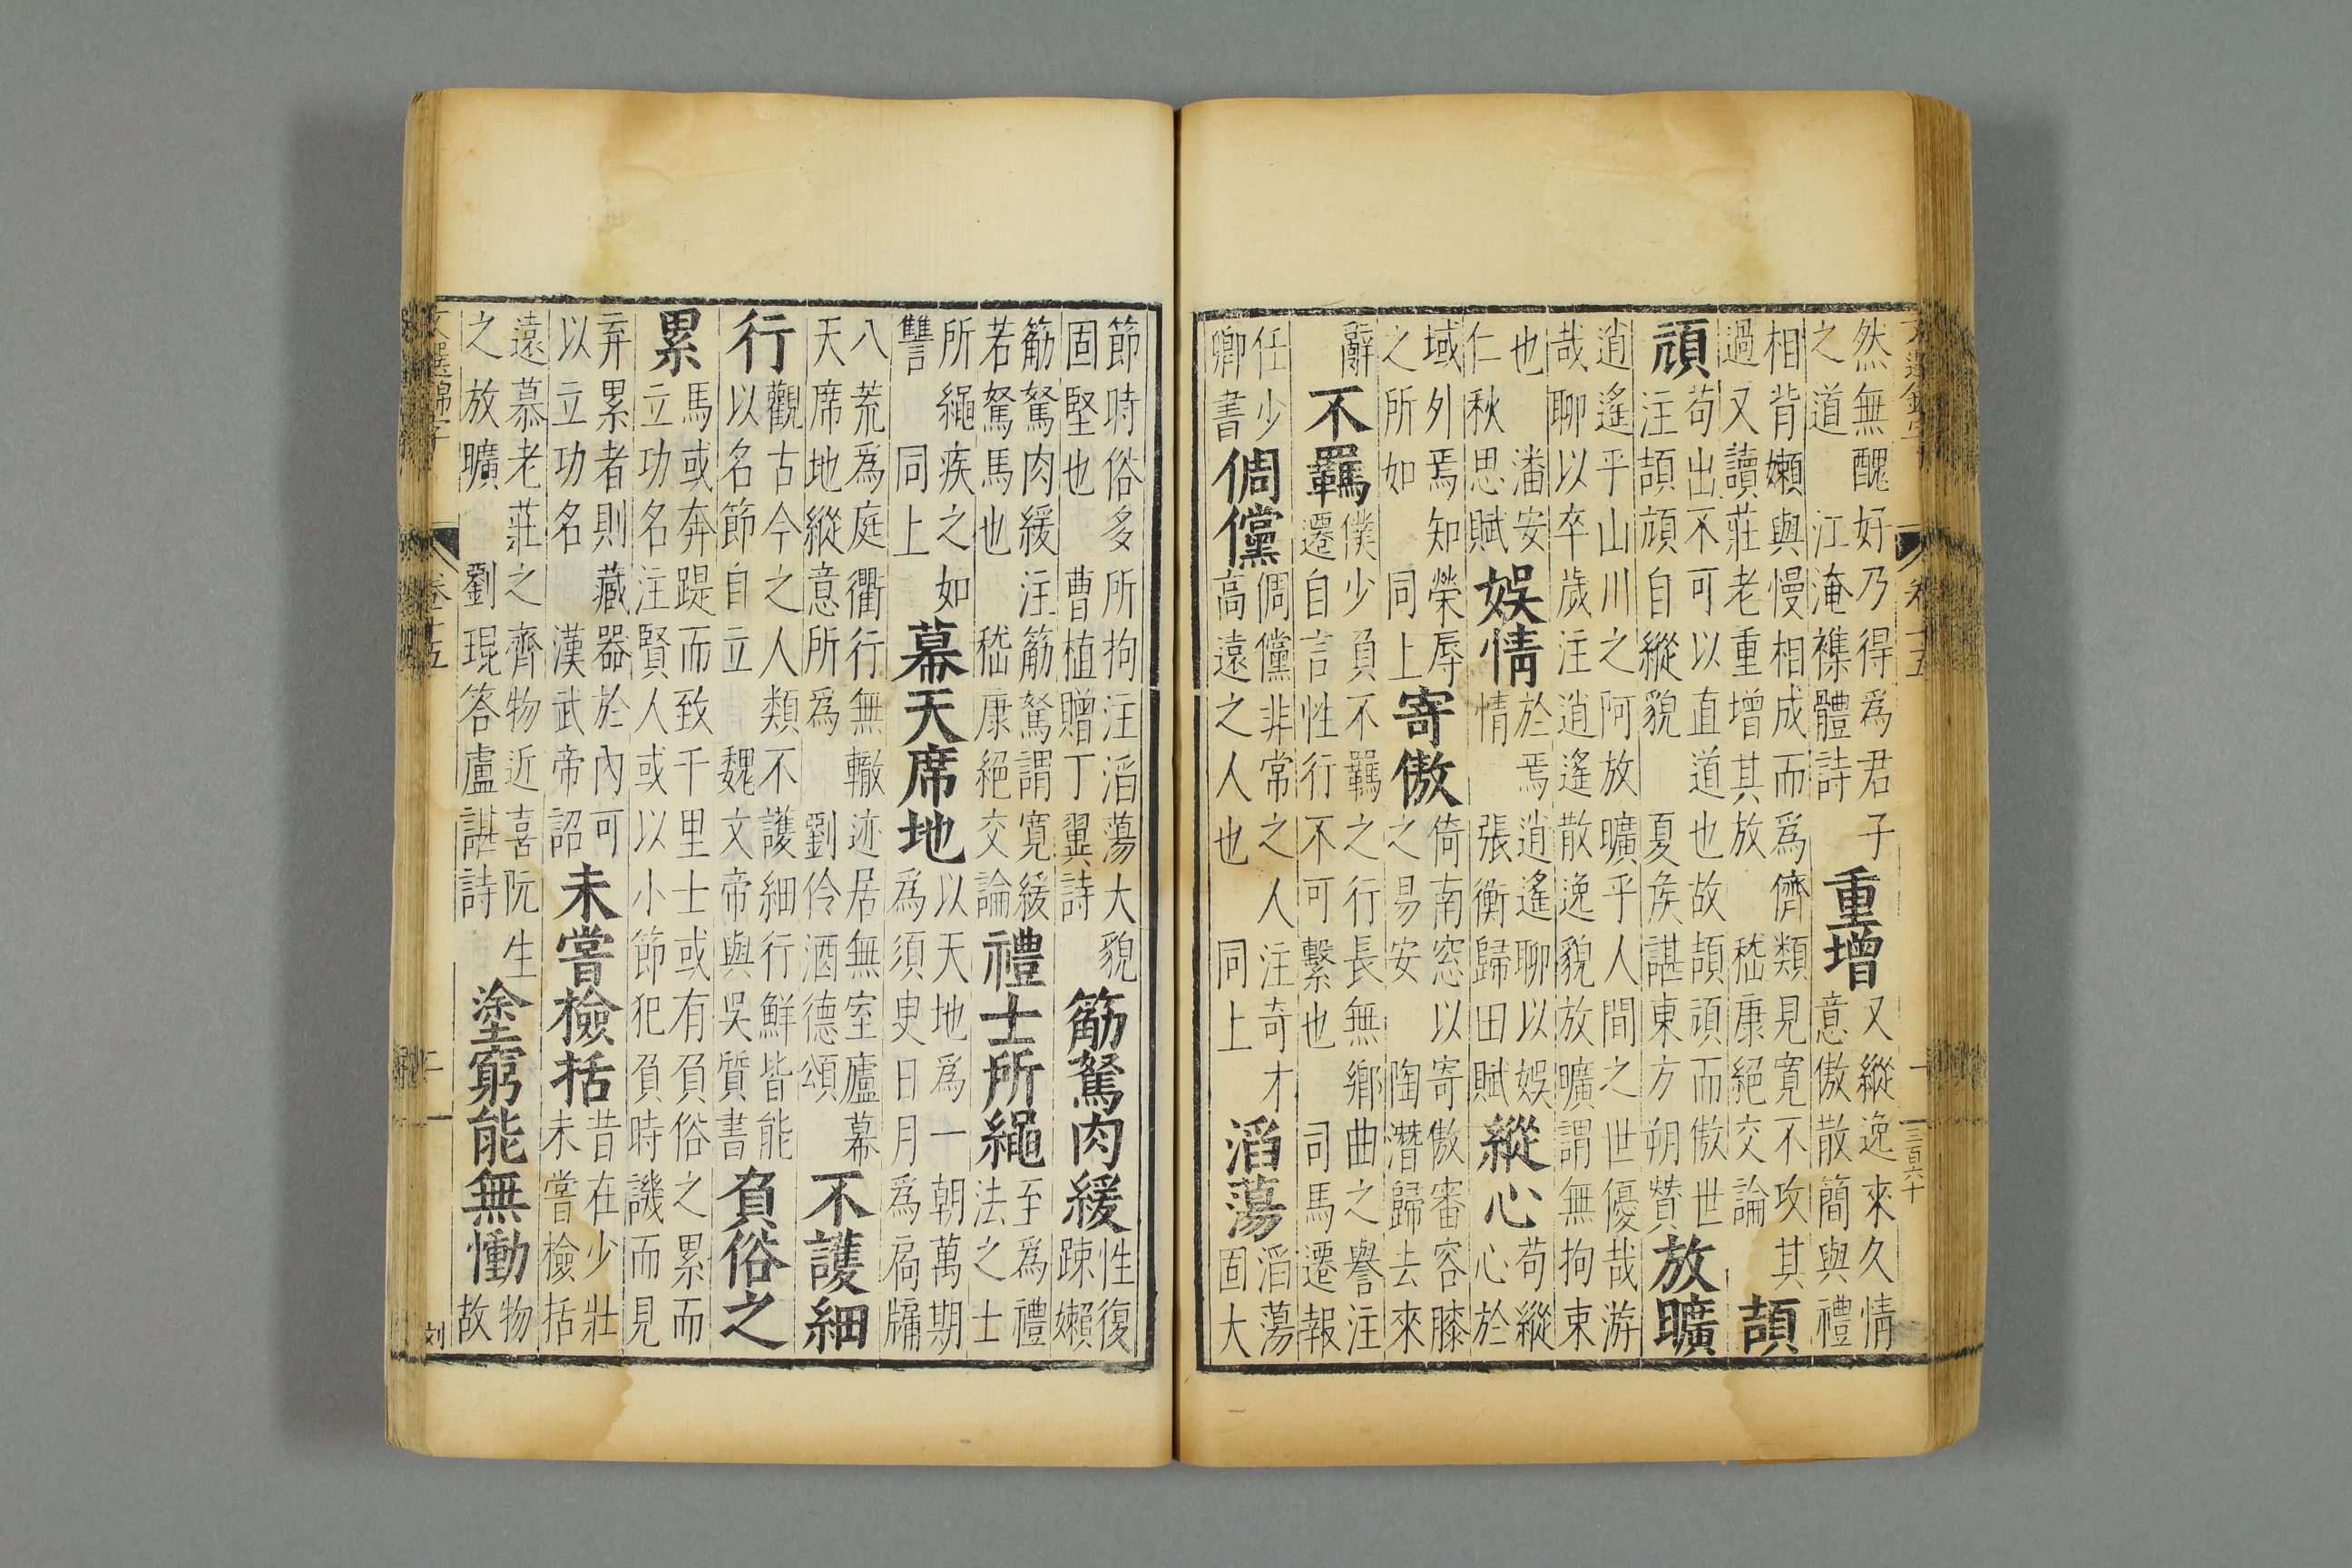 然無醜好乃得爲君子
之道 江淹襍體詩
重增
又縱逸來久情
意傲散簡與禮
相背嬾與慢相成而爲儕類見寬不攻其
過又讀莊老重增其放 嵇康絕交論
頡
頏
苟出不可以直道也故頡頏而傲世
注頡頏自縱貌 夏矦諶東方朔贊
放曠
逍遙乎山川之阿放曠乎人間之世優哉游
哉聊以卒歲注逍遙散逸貌放曠謂無拘束
也 潘安
仁秋思賦
娛情
於焉逍遙聊以娛
情 張衡歸田賦
縱心
苟縱
心於
域外焉知榮辱
之所如 同上
寄傲
倚南窓以寄傲審容膝
之易安 陶潛歸去來
辭
不羈
僕少負不羈之行長無鄉曲之譽注
遷自言性行不可繫也 司馬遷報
任少
卿書
倜儻
倜儻非常之人注奇才
高遠之人也 同上
滔蕩
滔蕩
固大
三百六十
節時俗多所拘注滔蕩大貌
固堅也 曹植贈丁翼詩
筋駑肉緩
性復
踈嬾
筋駑肉緩注筋駑謂寬緩
若駑馬也 嵇康絕交論
禮士所繩
至爲禮
法之士
所繩疾之如
讐 同上
幕天席地
以天地爲一朝萬期
爲須臾日月爲扃牖
八荒爲庭衢行無轍迹居無室廬幕
天席地縱意所爲 劉伶酒德頌
不護細
行
觀古今之人類不護細行鮮皆能
以名節自立 魏文帝與吳質書
負俗之
累
馬或奔踶而致千里士或有負俗之累而
立功名注賢人或以小節犯負時譏而見
弃累者則藏器於內可
以立功名 漢武帝詔
未嘗檢括
昔在少壯
未嘗檢括
遠慕老莊之齊物近喜阮生
之放曠 劉琨答盧諶詩
塗窮能無慟
物
故
刘